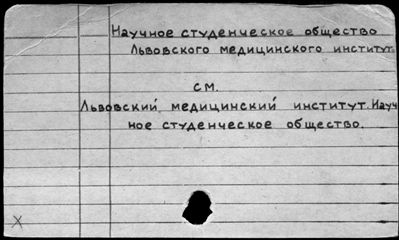 Научное студенческое общество
Львовского медицинского институт.
см.
Львовский медицинский институт. Науч
ное студенческое общество.
X